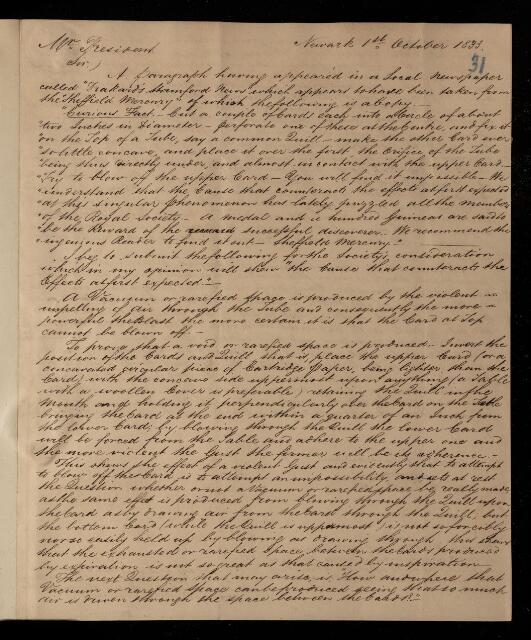 Mr. President
Newark 1st October 1833
31
Sir,)
A Paragraph having appeared in a Local Newspaper
called "Drakards Stamford News which appears to have been taken from
the "Sheffield Mercury", of which the following is a copy.—
"Curious Fact.— Cut a couple of Cards each into a Circle of about
"two Inches in diameter — Perforate one of these at the Centre, and fix it
"on the Top of a Tube, say a common Quill — make the other Card ever
"so little concave, and place it over the first the Orifice of the Tube
"being thus directly under, and almost in contact with the upper Card.
"Try to blow off the upper Card — You will find it impossible — We
"understand that the Cause that counteracts the effects at first expected
"at this singular phenomenon has lately puzzled all the members
"of the Royal Society — A medal and a hundred Guineas are said to
"be the Reward of the successful discoverer. We recommend the
"ingenious Reader to find it out — Sheffield Mercury."
I beg to submit the following for the Society's consideration
which in my opinion will shew "the Cause that counteracts the
Effects at first expected."—
A Vacuum or rarefied Space is produced by the violent
impelling of Air through the Tube and consequently the more
powerful the blast the more certain it is that the Card at Top
cannot be blown off —
To prove that a void or rarefied space is produced — Invert the
position of the Cards and Quill, that is, place the upper Card (or a
concavated circular piece of Cartridge Paper, being lighter than the
Card) with the concave side uppermost upon anything (a Table
with a woollen Cover is preferable) retaining the Quill in the
Mouth and holding it perpendicularly over the Card on the
bringing the Card at the end within a quarter of an Inch from
the lower Card; by blowing through the Quill the lower Card
will be forced from the Table and adhere to the upper one and
the more violent the Gust the firmer will be its adherence —
This shews the effect of a violent Gust and evidently that to attempt
to blow off the Card is to attempt an impossibility and sets at rest
the Question whether or not a Vacuum or rarefied space be really made
as the same effect is produced from blowing through the Quill upon
the Card as by drawing Air from the Card through the Quill, but
the bottom Card (while the Quill is uppermost) is not so forcibly
nor so easily held up by blowing as drawing through this shews
that the exhausted or rarefied Space between the Cards produced
by expiration is not so great as that caused by inspiration
The next Question that may arise, is, How and where that
Vacuum or rarefied Space can be produced seeing that so much
Air is driven through the space between the Cards?"